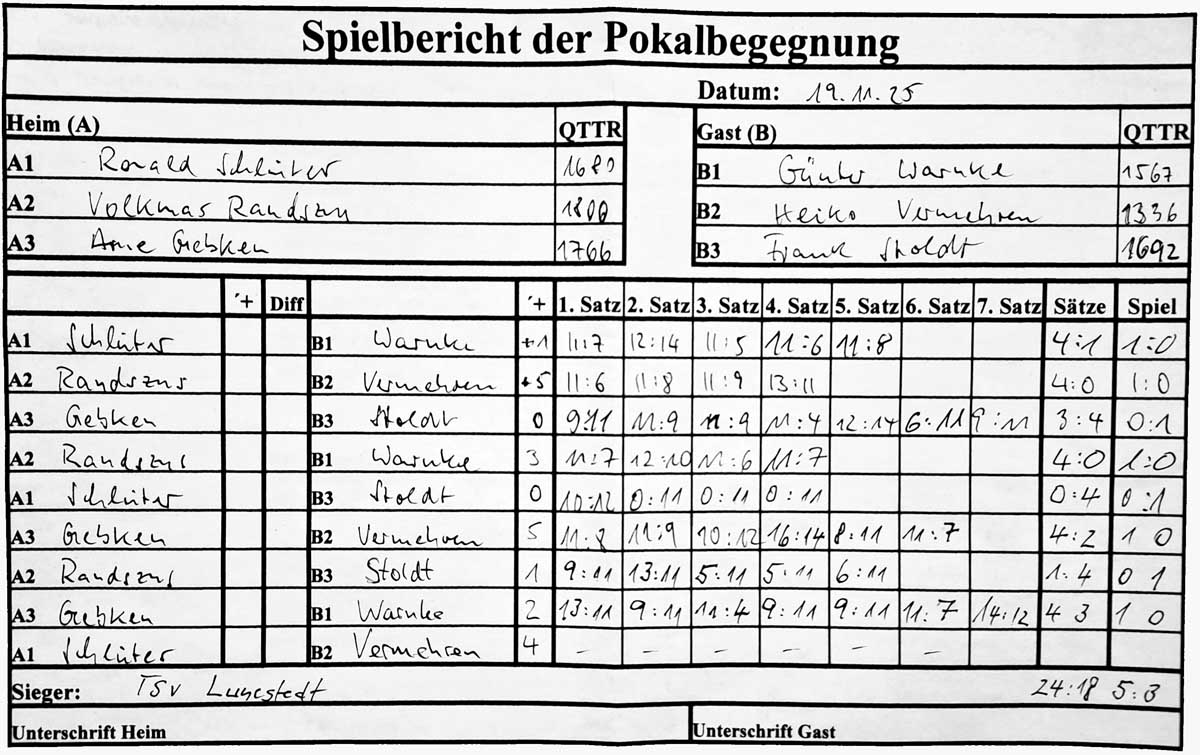 Spielbericht der Pokalbegegnung
Datum: 19.11.25
Heim (A) QTTR Gast (B) QTTR
A1 Ronald Schlüter 1680 B1 Günter Warnke 1567
A2 Volkmar Randszus 1800 B2 Heiko Vermehren 1336
A3 Arne Gebken 1766 B3 Frank Stoldt 1692
´+ Diff ´+ 1. Satz 2. Satz 3. Satz 4. Satz 5. Satz 6. Satz 7. Satz Sätze Spiel
A1 Schlüter B1 Warnke +1 11:7 12:14 11:5 11:6 11:8 4:1 1:0
A2 Randszus B2 Vermehren +5 11:6 11:8 11:9 13:11 4:0 1:0
A3 Gebken B3 Stoldt 0 9:11 11:9 11:9 11:4 12:14 6:11 9:11 3:4 0:1
A2 Randszus B1 Warnke 3 11:7 12:10 11:6 11:7 4:0 1:0
A1 Schlüter B3 Stoldt 0 10:12 0:11 0:11 0:11 0:4 0:1
A3 Gebken B2 Vermehren 5 11:8 11:9 10:12 16:14 8:11 11:7 4:2 1 0
A2 Randszus B3 Stoldt 1 9:11 13:11 5:11 5:11 6:11 1:4 0 1
A3 Gebken B1 Warnke 2 13:11 9:11 11:4 9:11 9:11 11:7 14:12 4 3 1 0
A1 Schlüter B2 Vermehren 4 – – – – – –
Sieger: TSV Lunestedt 24:18 5:3
Unterschrift Heim Unterschrift Gast